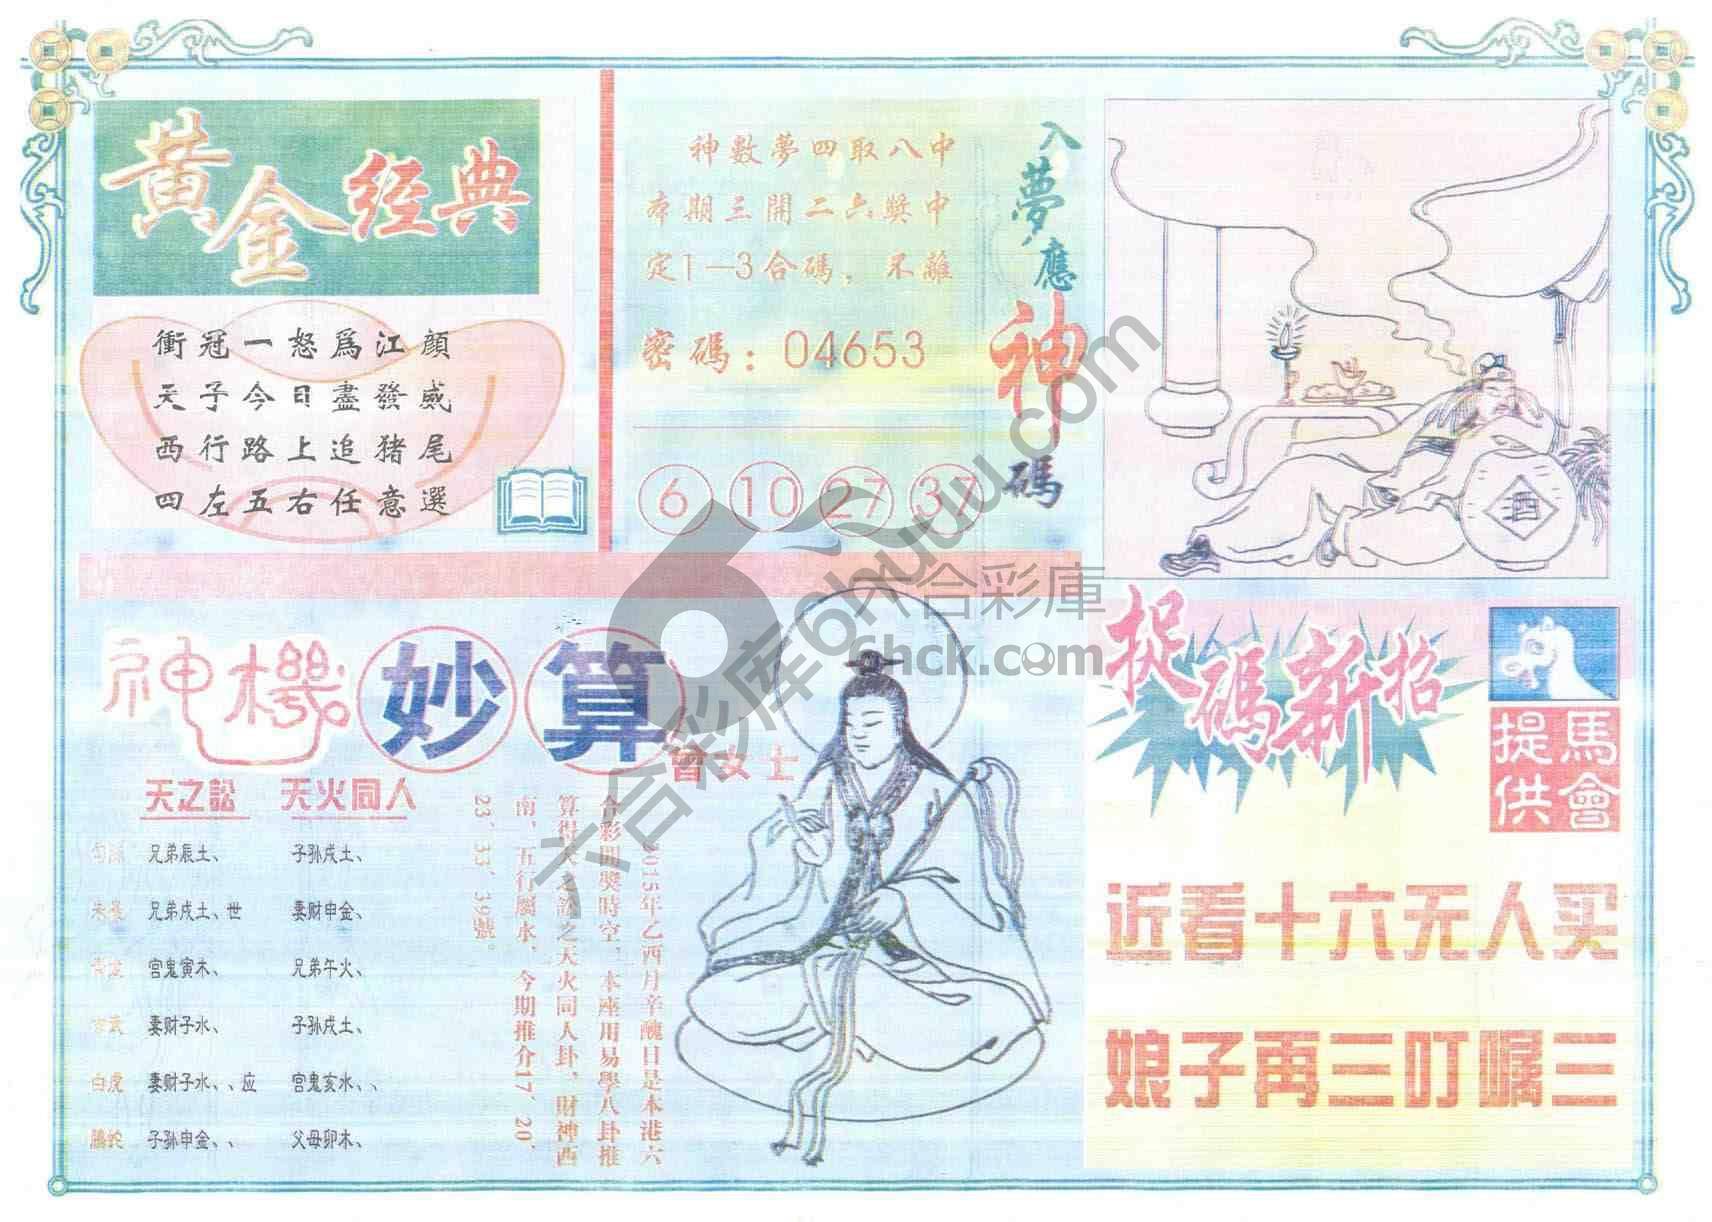 黃金經典
衝冠一怒爲江顏
天子今日盡發威
西行路上追猪尾
四左五右任意選
神數夢四取八中
本期三開二六獎中
定1—3合碼，不離
密碼：04653
6 10 27 37
入夢應神碼
酒
神機妙算
曾女士
天之訟 天火同人
兄弟辰土、 子孙戌土、
兄弟戌土、世 妻财申金、
宫鬼寅木、 兄弟午火、
妻财子水、 子孙戌土、
白虎 妻财子水、、应 宫鬼亥水、、
子孙申金、、 父母卯木、
2015年乙酉月辛醜日是本港六
合彩開獎時空，本座用易學八卦推
算得天之訟之天火同人卦，財神西
南，五行屬水，今期推介17、20、
23、33、39號。
捉碼新招
馬會提供
近看十六无人买
娘子再三叮嘱三
六合彩庫
6hck.com
六合彩库6huu.com